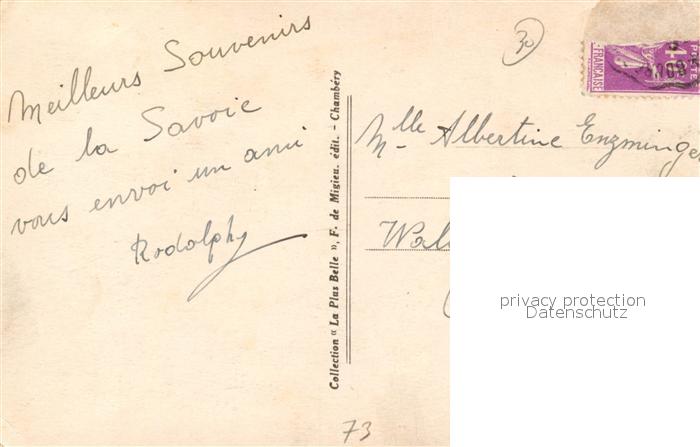 Meilleurs Souvenirs
de la Savoie
vous envoi un ami
Rodolphy
Collection « La Plus Belle », F. de Migieu, édit. - Chambéry
30
POSTE
FRANÇAISE
Mlle Albertine Enzminger
privacy protection
Datenschutz
73